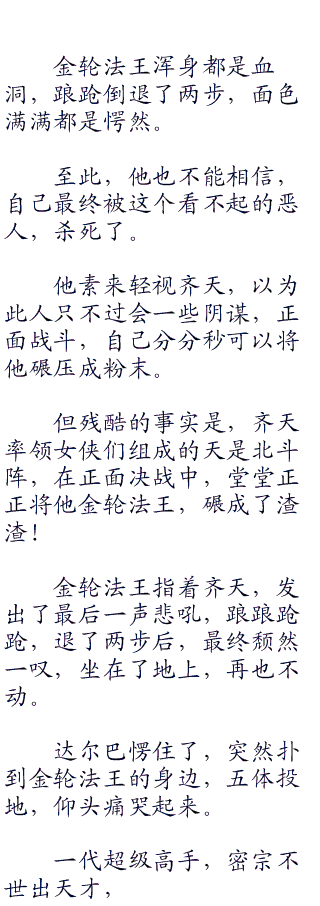 金轮法王浑身都是血
洞，踉跄倒退了两步，面色
满满都是愕然。
至此，他也不能相信，
自己最终被这个看不起的恶
人，杀死了。
他素来轻视齐天，以为
此人只不过会一些阴谋，正
面战斗，自己分分秒可以将
他碾压成粉末。
但残酷的事实是，齐天
率领女侠们组成的天是北斗
阵，在正面决战中，堂堂正
正将他金轮法王，碾成了渣
渣！
金轮法王指着齐天，发
出了最后一声悲吼，踉踉跄
跄，退了两步后，最终颓然
一叹，坐在了地上，再也不
动。
达尔巴愣住了，突然扑
到金轮法王的身边，五体投
地，仰头痛哭起来。
一代超级高手，密宗不
世出天才，